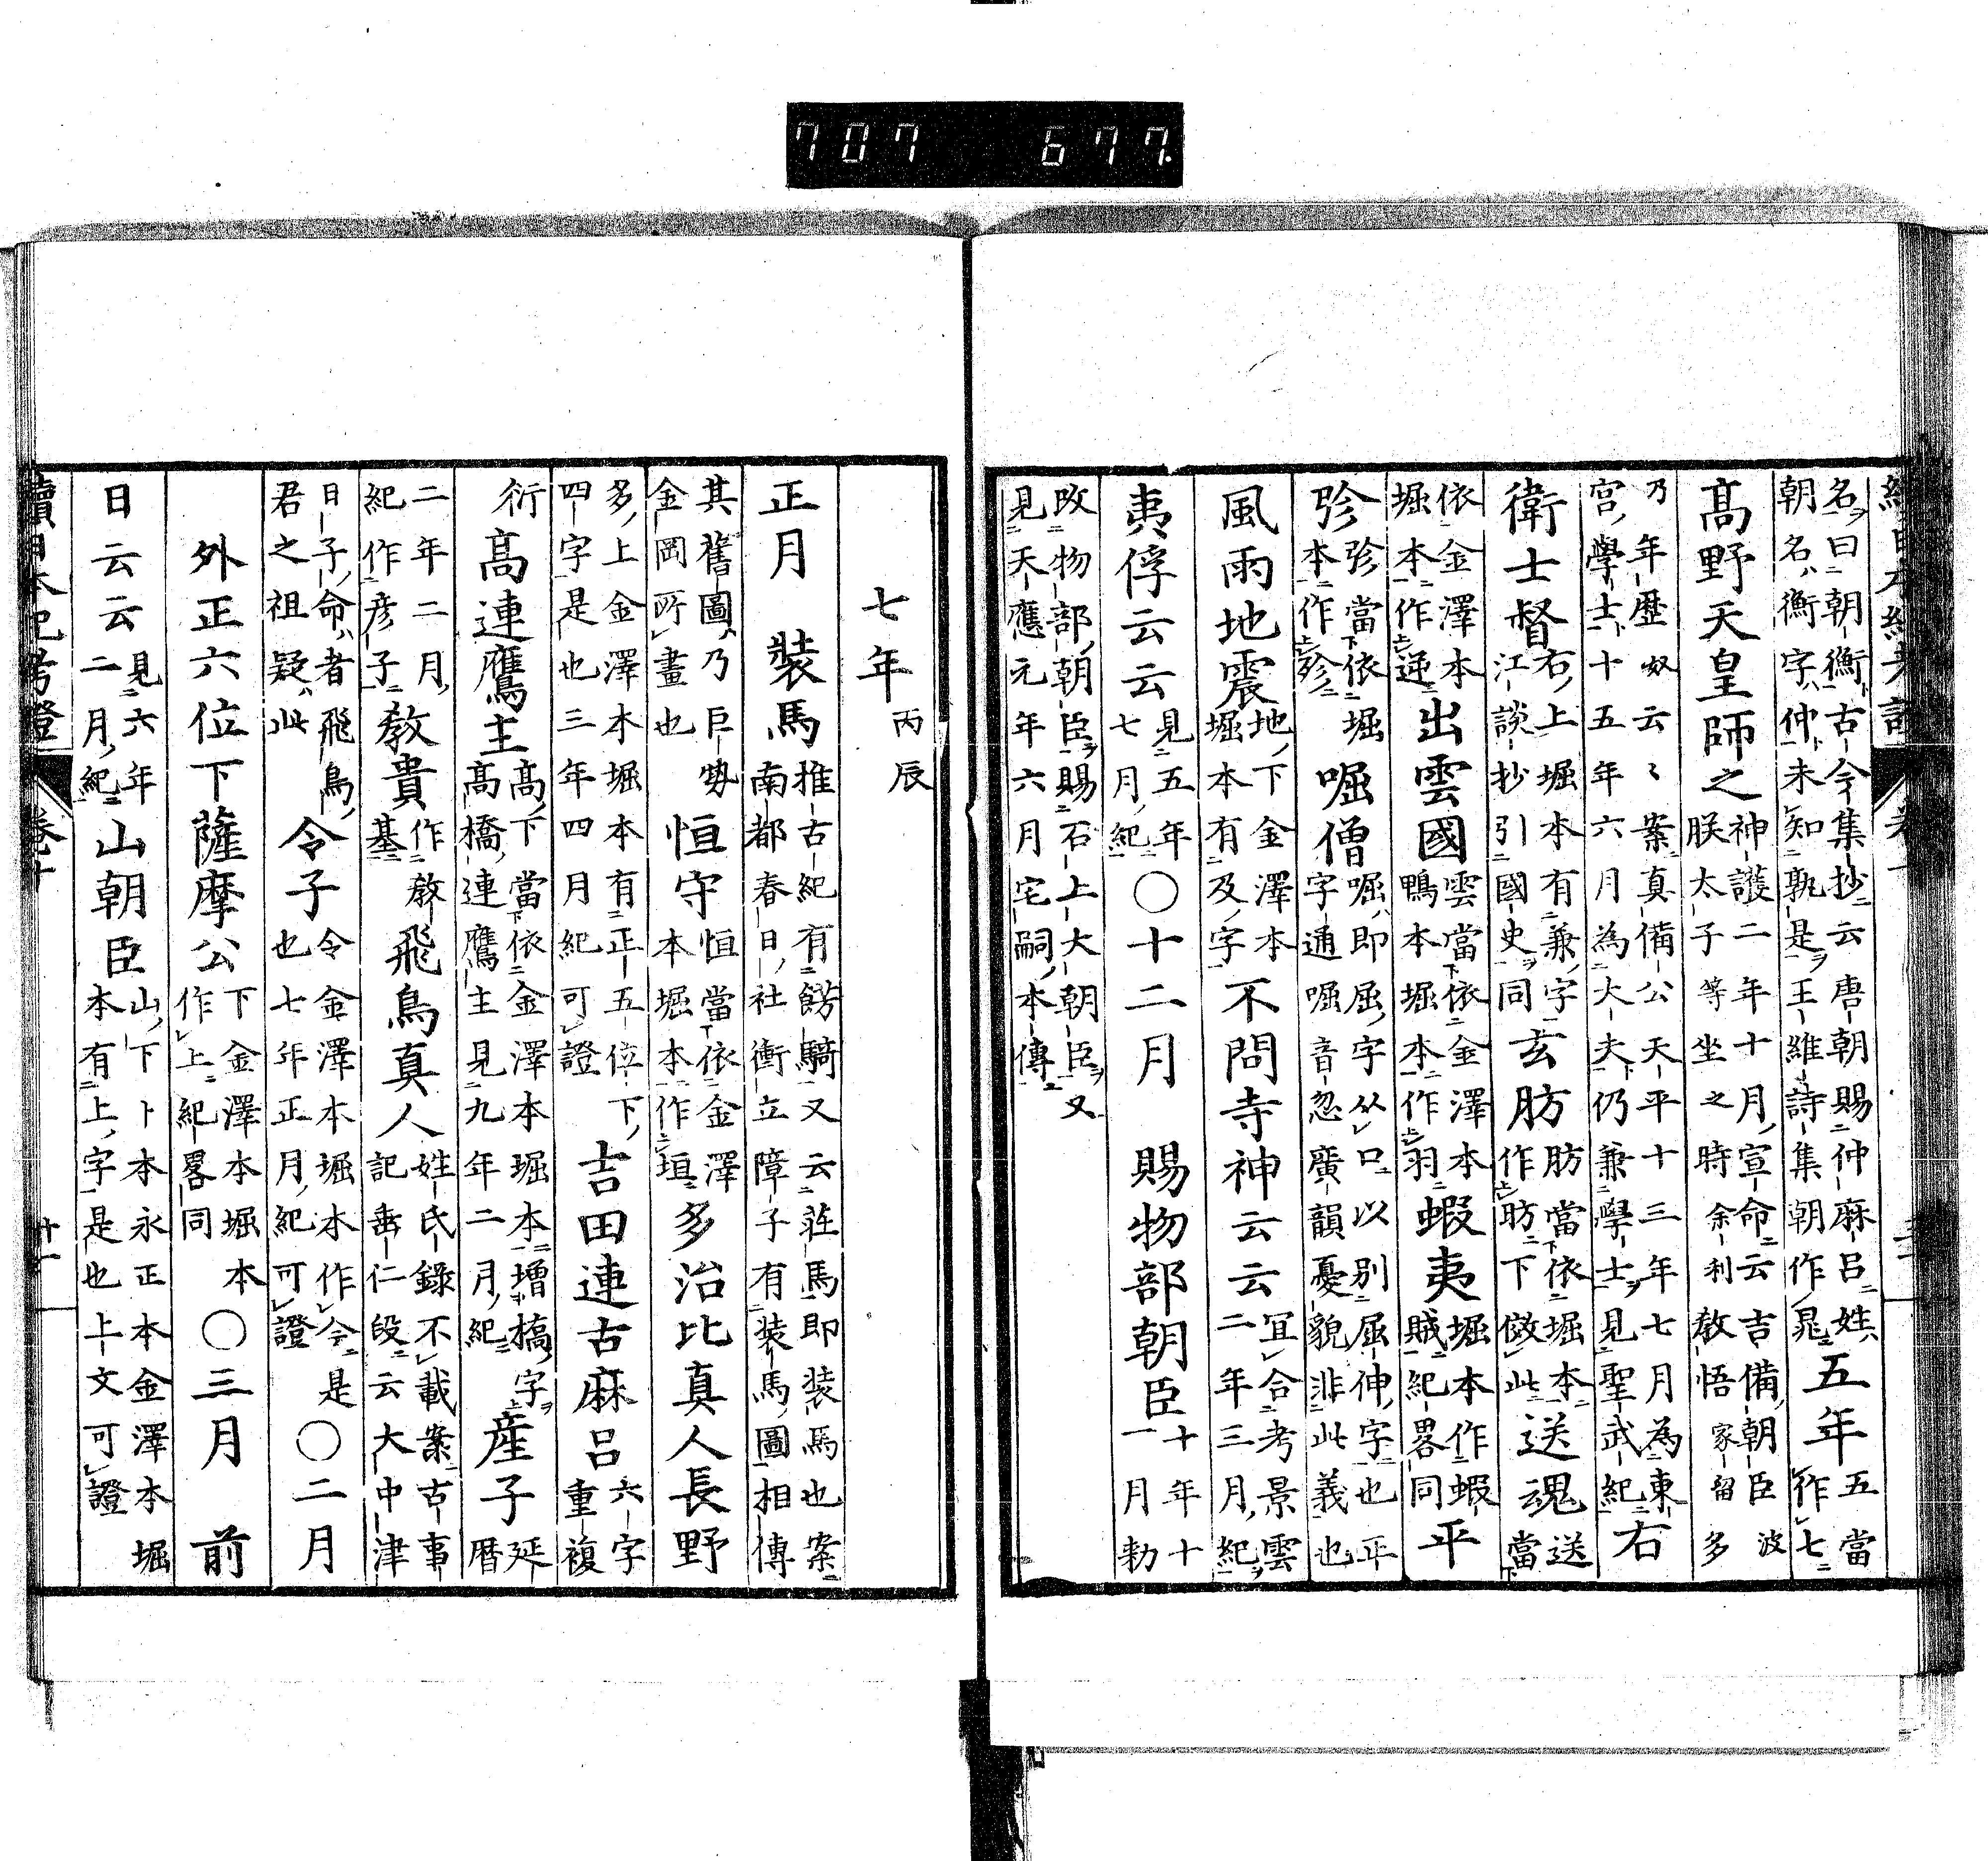 707 677.
名曰朝衡古今集抄云唐朝賜仲麻呂姓
朝名衡字仲未知孰是王維詩集朝作晁
五年
五當
作七
高野天皇師之
神護二年十月宣命云吉備朝臣波
朕太子等坐之時余利教悟家留多
乃年歴奴云々案真備公天平十三年七月為東
宮學士十五年六月為大夫仍兼學士見聖武紀
右
衛士督
右上堀本有兼字
江談抄引國史同
玄肪
肪當依堀本
作昉下傚此
送魂
送
當
依金澤本
堀本作逆
出雲國
雲當依金澤本
鴨本堀本作羽
蝦夷
堀本作蝦
賊紀畧同
平
殄
殄當依堀
本作殄
𡸖僧
𡸖即屈字从口以別屈伸字也平
字通𡸖音忽廣韻憂貌非此義也
風雨地震
地下金澤本
堀本有及字
不問寺神云云
宜合考景雲
二年三月紀
夷俘云云
見五年
七月紀
〇十二月 賜物部朝臣
十年十
一月勅
改物部朝臣賜石上大朝臣又
見天應元年六月宅嗣本傳
七年
丙辰
正月 裝馬
推古紀有餝騎又云莊馬即装馬也案
南都春日社衝立障子有装馬圖相傳
其舊圖乃巨勢
金岡所畫也
恒守
恒當依金澤
本堀本作垣
多治比真人長野
多上金澤本堀本有正五位下
四字是也三年四月紀可證
吉田連古麻呂
六字
重複
衍
高連鷹主
高下當依金澤本堀本増橋字
高橋連鷹主見九年二月紀
産子
延
暦
二年二月
紀作彦子
教貴
作敎
基
飛鳥真人
姓氏録不載案古事
記垂仁段云大中津
日子命者飛鳥
君之祖疑此
令子
令金澤本堀本作今是
也七年正月紀可證
〇二月
外正六位下薩摩公
下金澤本堀本
作上紀畧同
〇三月 前
日云云
見六年
二月紀
山朝臣
山下卜本永正本金澤本堀
本有上字是也上文可證
續日本紀考證 卷十